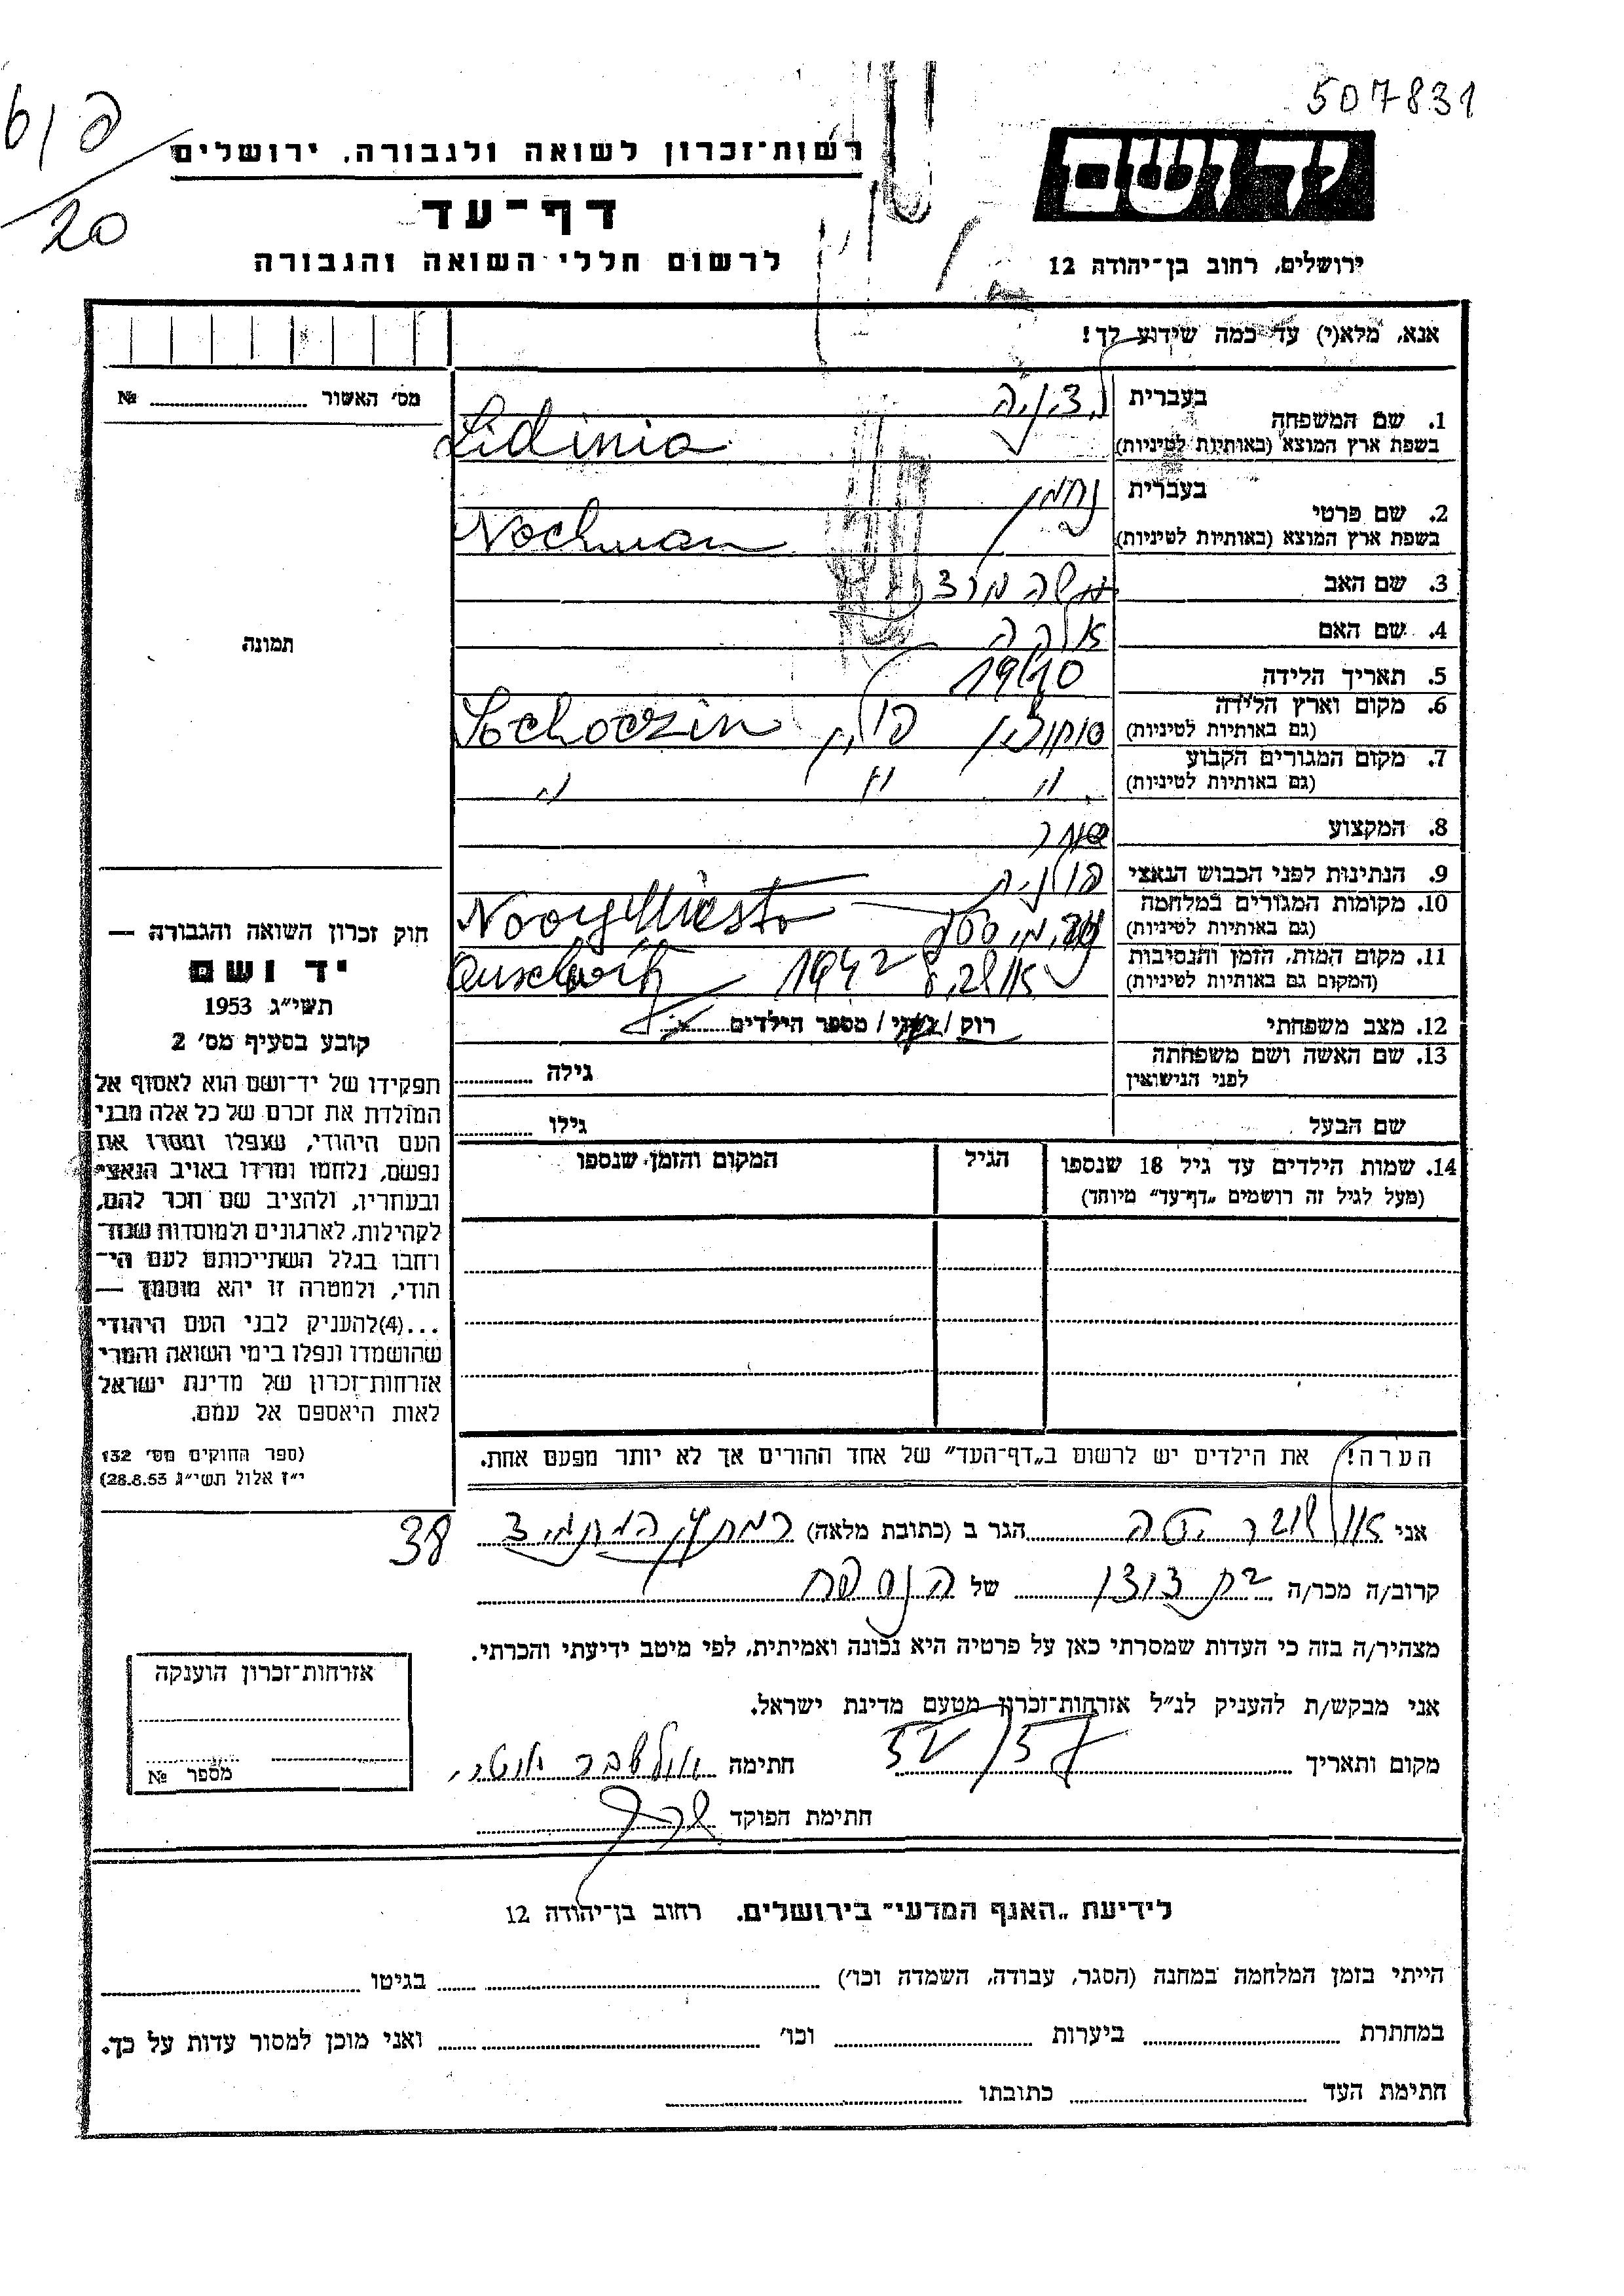 507831
פ/ט
20
יד ושם
רשות־זכרון לשואה ולגבורה, ירושלים
דף־עד
לרשום חללי השואה והגבורה
ירושלים, רחוב בן־יהודה 12
אנא, מלא(י) עד כמה שידוע לך!
מס׳ האשור № 
תמונה
1. שם המשפחה
בעברית
בשפת ארץ המוצא (באותיות לטיניות)
Lidinia
2. שם פרטי
בעברית נחמן
בשפת ארץ המוצא (באותיות לטיניות)
Nochman
3. שם האב משה
4. שם האם
5. תאריך הלידה 1910
6. מקום וארץ הלידה
(גם באותיות לטיניות)
סוחוצין פולין Sochoczin
7. מקום המגורים הקבוע
(גם באותיות לטיניות)
" " "
8. המקצוע סוחר
9. הנתינות לפני הכבוש הנאצי פולנית
10. מקומות המגורים במלחמה
(גם באותיות לטיניות)
Novy Miasto
11. מקום המות, הזמן והנסיבות
(המקום גם באותיות לטיניות)
1942 Auschwitz
12. מצב משפחתי
רוק / נשוי / מספר הילדים
13. שם האשה ושם משפחתה
לפני הנישואין
גילה
שם הבעל
גילו
14. שמות הילדים עד גיל 18 שנספו
(מעל לגיל זה רושמים „דף־עד״ מיוחד)
הגיל
המקום והזמן שנספו
הערה! את הילדים יש לרשום ב„דף־העד״ של אחד ההורים אך לא יותר מפעם אחת.
חוק זכרון השואה והגבורה —
יד ושם
תשי״ג 1953
קובע בסעיף מס׳ 2
תפקידו של יד־ושם הוא לאסוף אל
המולדת את זכרם של כל אלה מבני
העם היהודי, שנפלו ומסרו את
נפשם, נלחמו ומרדו באויב הנאצי
ובעוזריו, ולהציב שם וזכר להם,
לקהילות, לארגונים ולמוסדות שנח־
רחבו בגלל השתייכותם לעם הי־
הודי, ולמטרה זו יהא מוסמך —
...(4)להעניק לבני העם היהודי
שהושמדו ונפלו בימי השואה והמרי
אזרחות־זכרון של מדינת ישראל
לאות היאספם אל עמם.
(ספר החוקים מס׳ 132
י״ז אלול תשי״ג 28.8.53)
אני הגר ב (כתובת מלאה) 38
קרוב/ה מכר/ה בת דודו של הנספה
מצהיר/ה בזה כי העדות שמסרתי כאן על פרטיה היא נכונה ואמיתית, לפי מיטב ידיעתי והכרתי.
אני מבקש/ת להעניק לנ״ל אזרחות־זכרון מטעם מדינת ישראל.
מקום ותאריך חתימה
חתימת הפוקד
אזרחות־זכרון הוענקה
מספר №
לידיעת „האגף המדעי״ בירושלים, רחוב בן־יהודה 12
הייתי בזמן המלחמה במחנה (הסגר, עבודה, השמדה וכו׳) בגיטו
במחתרת ביערות וכו׳ ואני מוכן למסור עדות על כך.
חתימת העד כתובתו